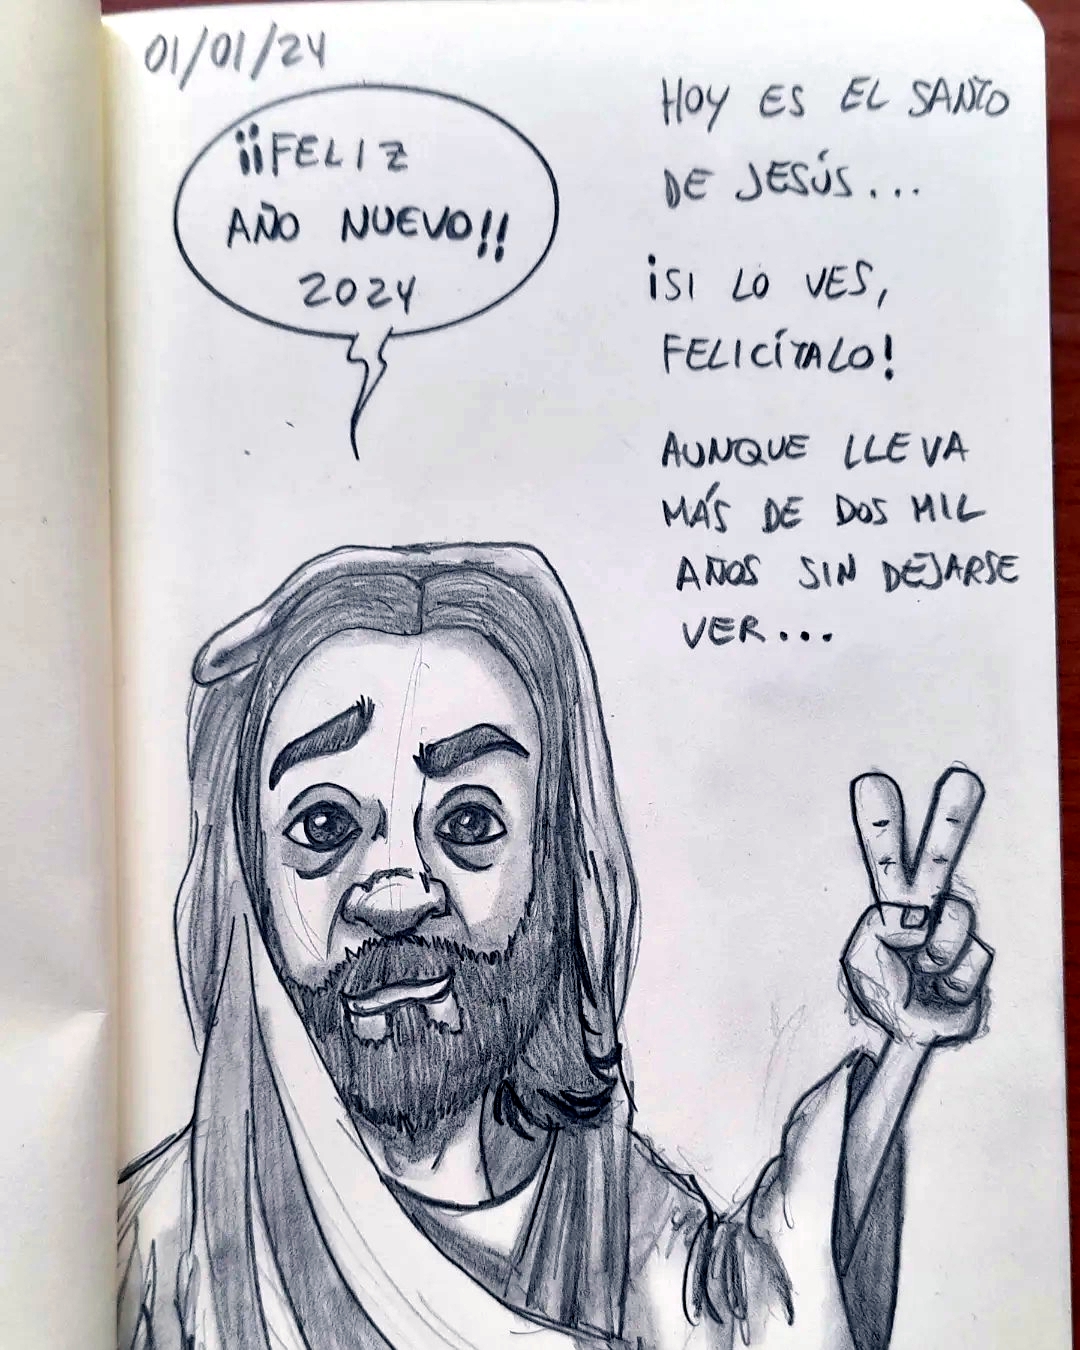 01/01/24
¡¡FELIZ
AÑO NUEVO!!
2024
HOY ES EL SANTO
DE JESÚS...
¡SI LO VES,
FELICÍTALO!
AUNQUE LLEVA
MÁS DE DOS MIL
AÑOS SIN DEJARSE
VER...